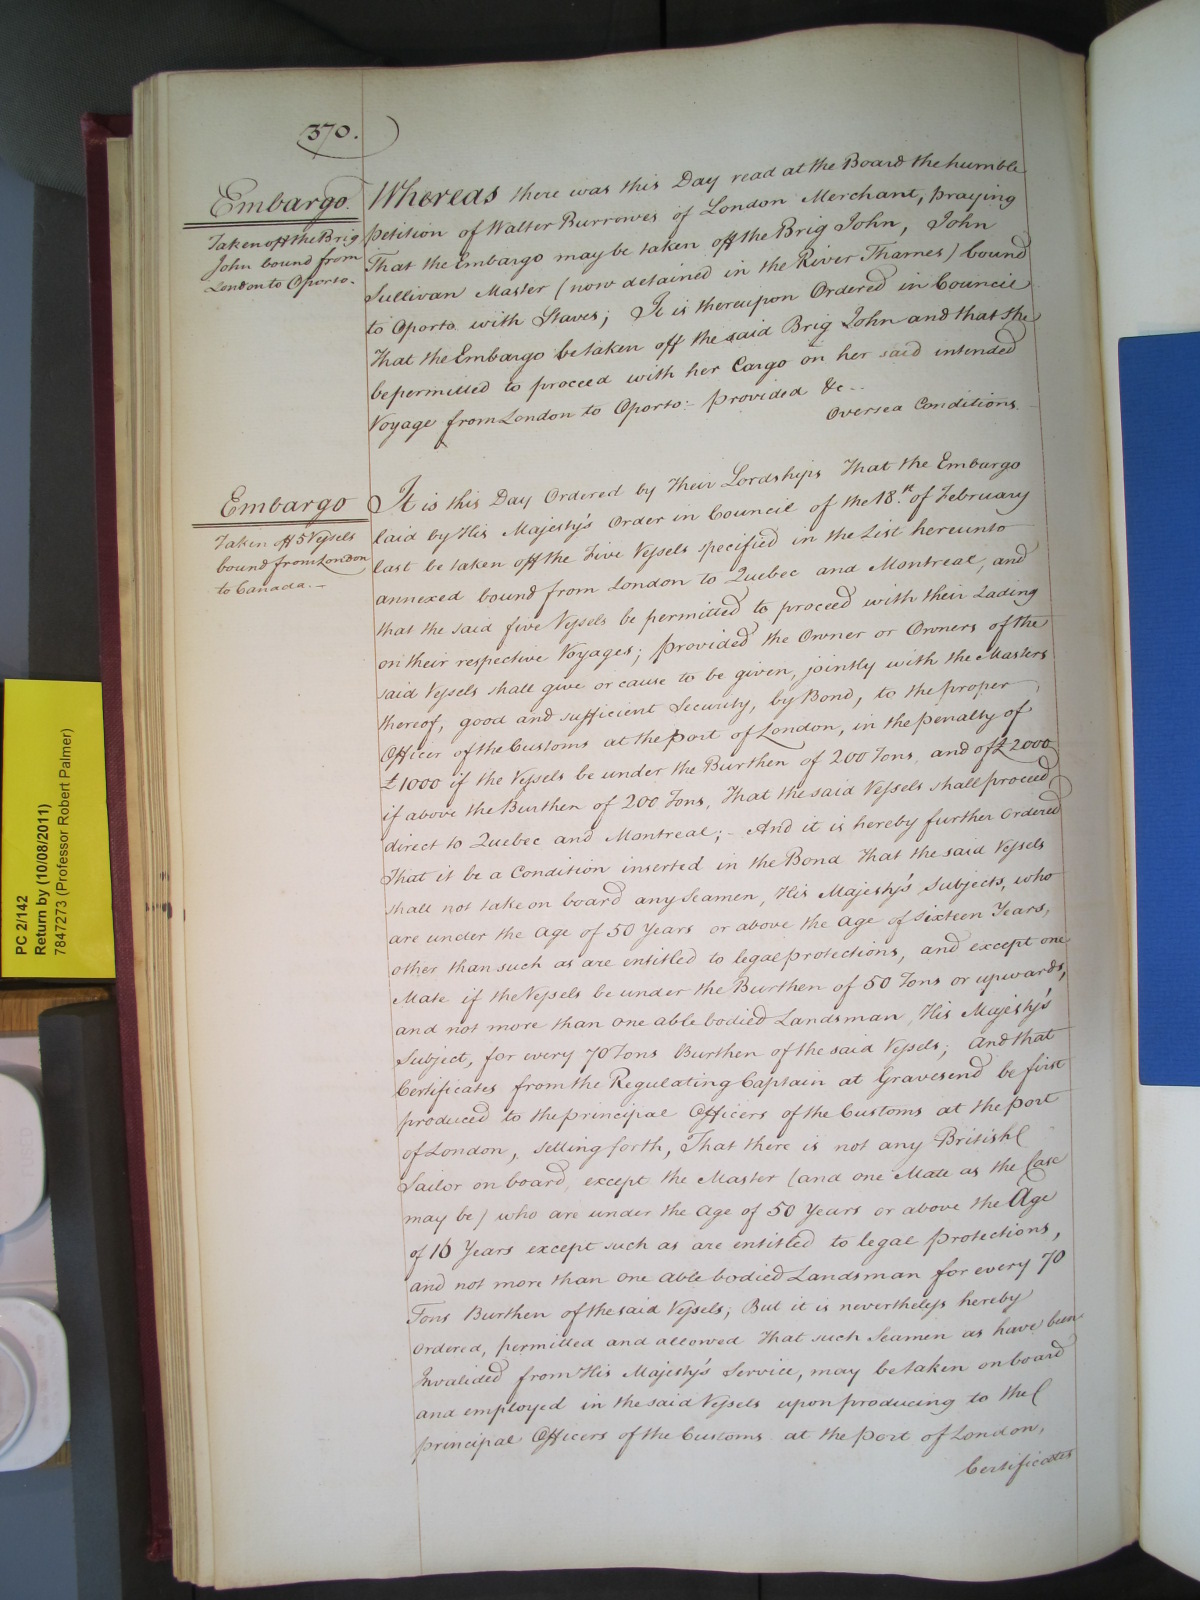 370.
Embargo.
Taken off the Brig
John bound from
London to Oporto.
Whereas there was this Day read at the Board the humble
petition of Walter Burrowes of London Merchant, praying
That the Embargo may be taken off the Brig John, John
Sullivan Master (now detained in the River Thames) bound
to Oporto with Staves; It is thereupon Ordered in Council
That the Embargo be taken off the said Brig John and that she
be permitted to proceed with her Cargo on her said intended
Voyage from London to Oporto:- provided &c--
Oversea Conditions
Embargo
Taken off 5 Vessels
bound from London
to Canada.-
It is this Day Ordered by Their Lordships That the Embargo
laid by His Majesty's Order in Council of the 18.th of February
last be taken off the Five Vessels specified in the List hereunto
annexed bound from London to Quebec and Montreal, and
that the said five Vessels be permitted to proceed with their Lading
on their respective Voyages; provided the Owner or Owners of the
said Vessels shall give or cause to be given, jointly with the Masters
thereof, good and sufficient Security, by Bond, to the proper
Officer of the Customs at the port of London, in the penalty of
£1000 if the Vessels be under the Burthen of 200 Tons, and of £2000
if above the Burthen of 200 Tons, That the said Vessels shall proceed
direct to Quebec and Montreal;- And it is hereby further Ordered
That it be a Condition inserted in the Bond That the said Vessels
shall not take on board any Seamen, His Majesty's Subjects, who
are under the age of 50 Years or above the Age of Sixteen Years,
other than such as are entitled to legal protections, and except one
Mate if the Vessels be under the Burthen of 50 Tons or upwards,
and not more than one able bodied Landsman, His Majesty's
Subject, for every 70 Tons Burthen of the said Vessels; And that
Certificates from the Regulating Captain at Gravesend be first
produced to the principal Officers of the Customs at the port
of London, setting forth, That there is not any British
Sailor on board, except the Master (and one Mate as the Case
may be) who are under the Age of 50 Years or above the Age
of 16 Years except such as are entitled to legal protections,
and not more than one able bodied Landsman for every 70
Tons Burthen of the said Vessels; But it is nevertheless hereby
Ordered, permitted and allowed That such Seamen as have been
Invalided from His Majesty's Service, may be taken on board
and employed in the said Vessels upon producing to the
principal Officers of the Customs at the port of London,
Certificates
PC 2/142
Return by (10/08/2011)
7847273 (Professor Robert Palmer)